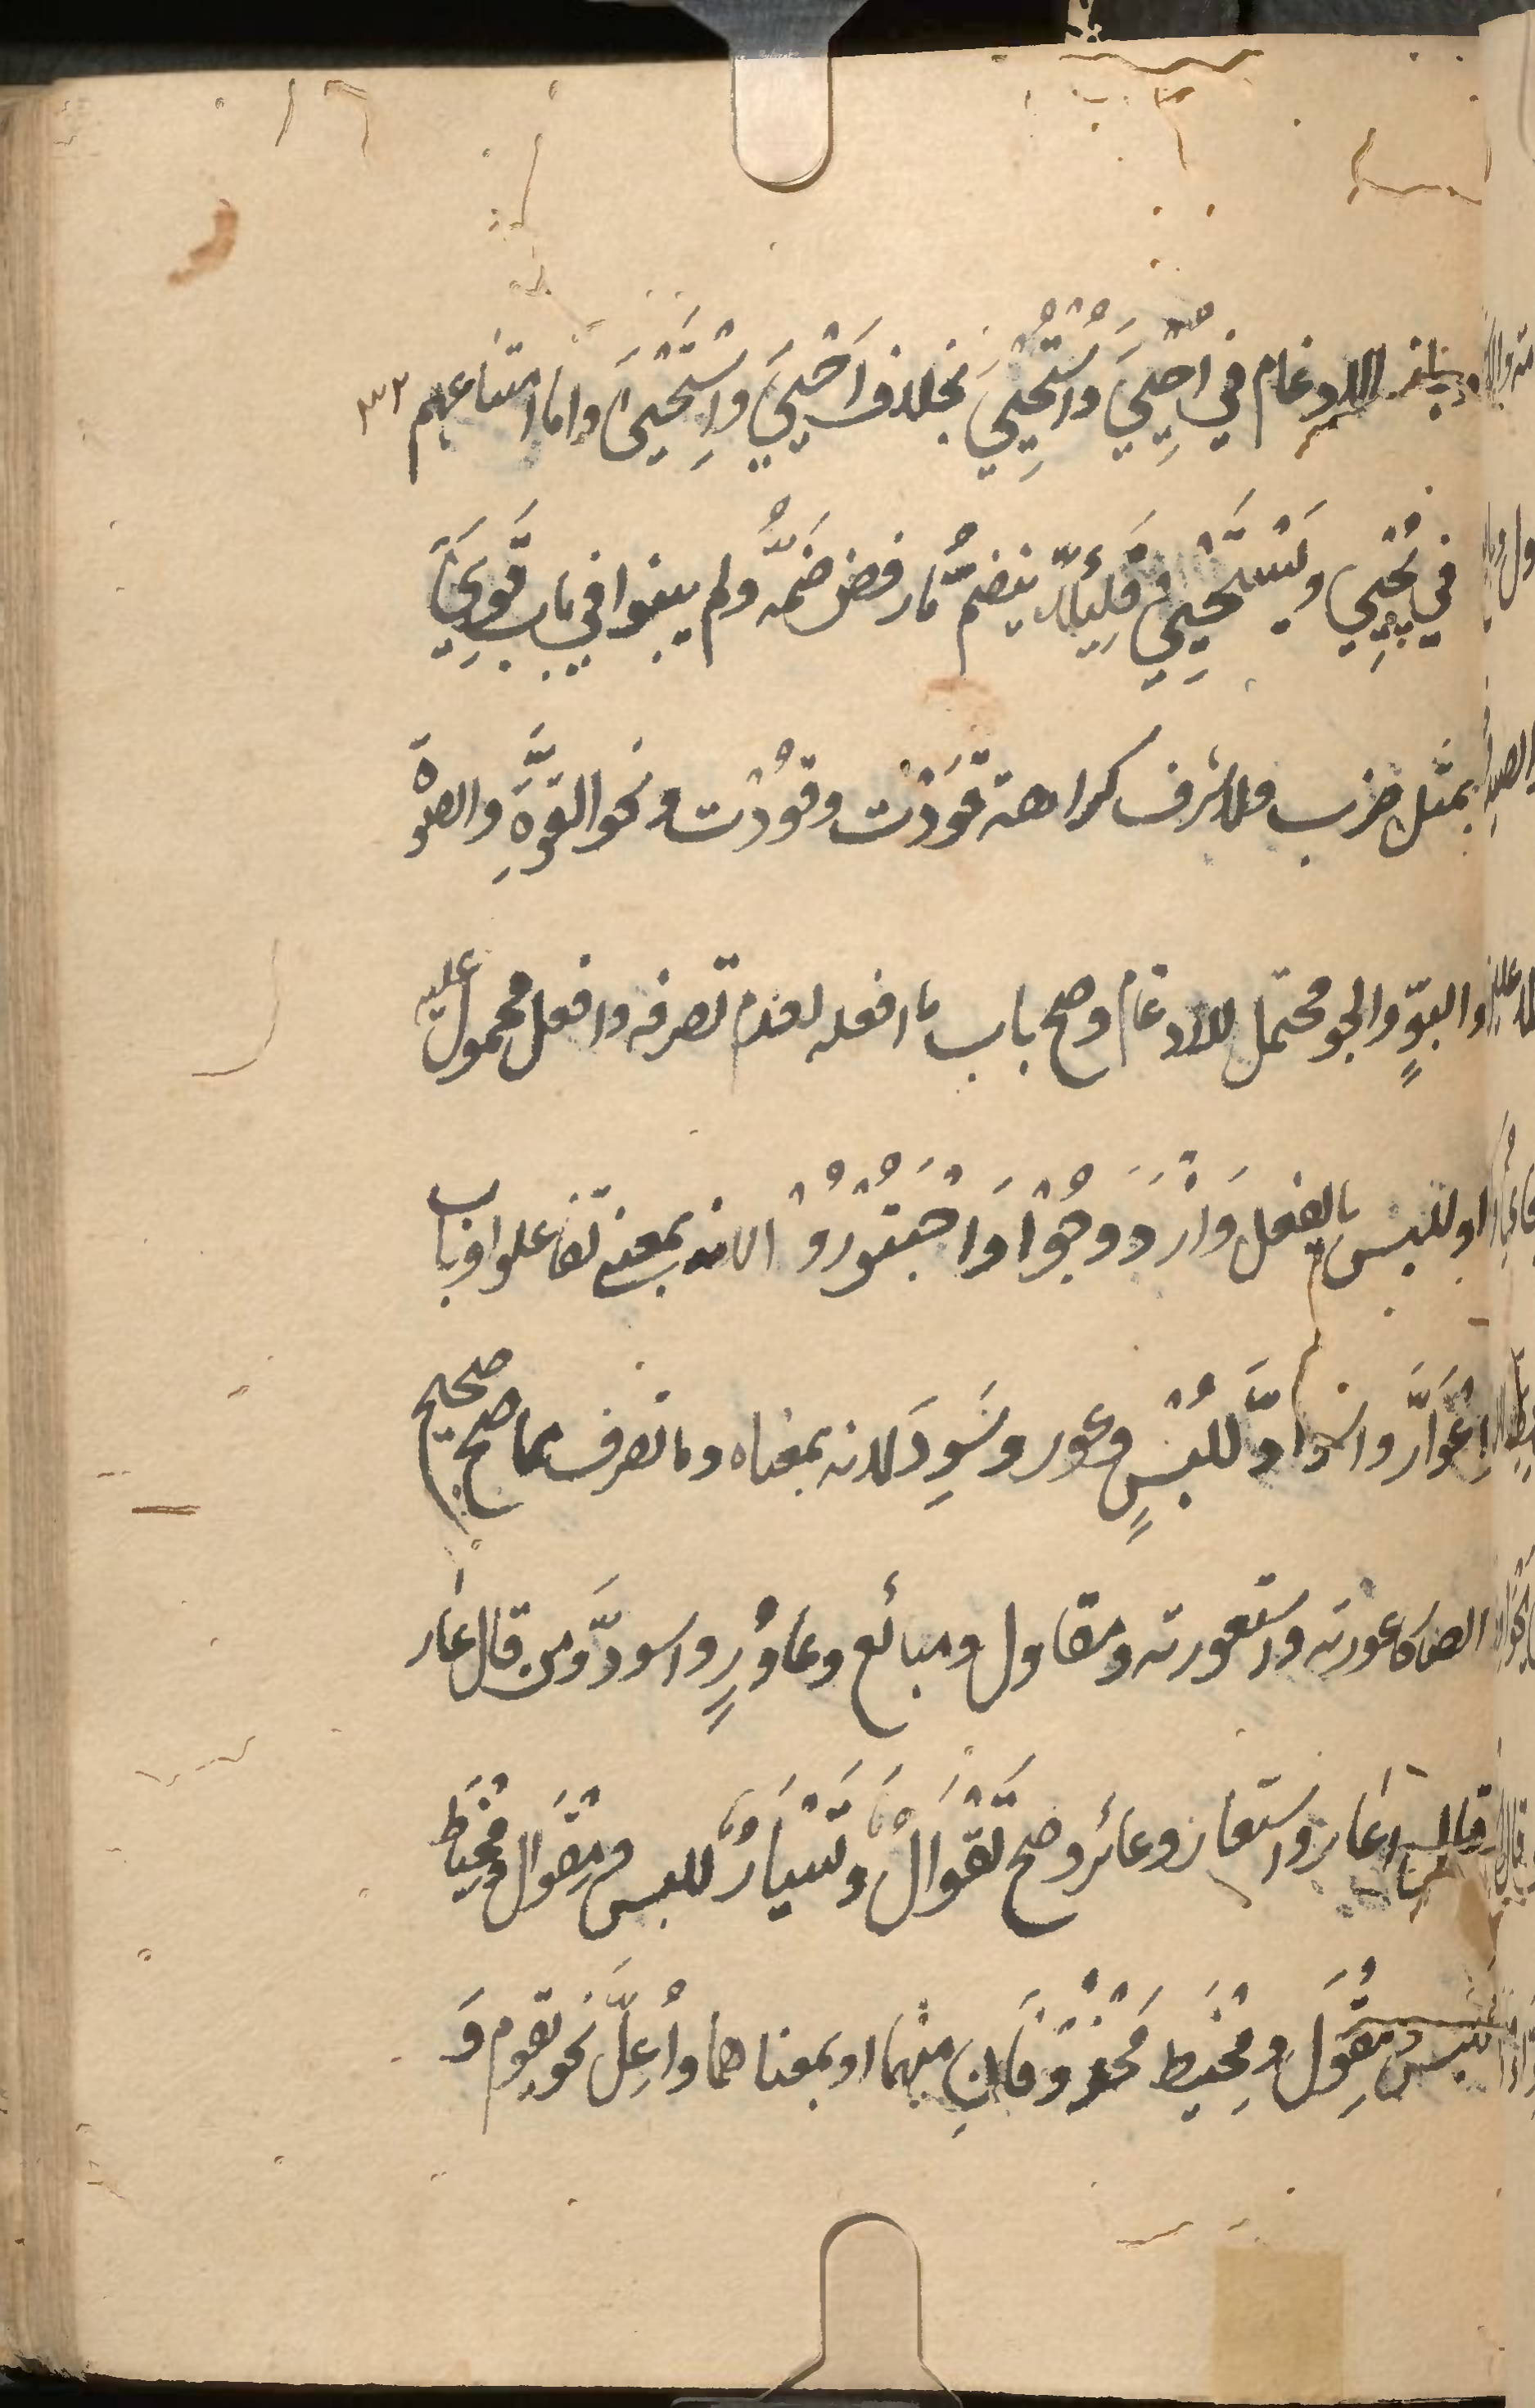 وجاز الادغام في اُحْيِيَ وَاُسْتُحْيِيَ بخلاف اَحْيَيَ وَاِسْتَحْيَيَ واما امتناعهم ٣٢
في يُحْيِي وَيَسْتَحْيِي فَلِئَلّا ينضمّ ما رفض ضمّه ولم يبنوا في باب قَوِيَ
بمثل ضرب ولا شرف كراهة قَوَوْت وقوُوْت ونحو القوّةِ والصوّة
والبوٍّ والجو محتمل للادغام وصح باب ما افعله لعدم تصرفه وافعل محمول عليه
او للبس بالفعل وَازْدَوَجُوْا وَاجْتَوَرُوْا لانه بمعنى تفاعلوا وباب
اِعْوَارَّ واسوادَّ للبْسٍ وعور وسَوِدَ لانه بمعناه وما تصرف مما صح صحيح
ايضا كاعورته واستعورته ومقاول ومبائع وعاوِرٍ واسودَّ ومن قال عار
قال اعار واستعار وعائر وصح تَقْوَالٌ وَتَسْيَارٌ للبس ومِقْوَال ومِخْيَاط
للبس ومِقْوَل ومِخْيَط محذوفانِ منهما او بمعناهما واُعِلَّ نحو يقوم وَ